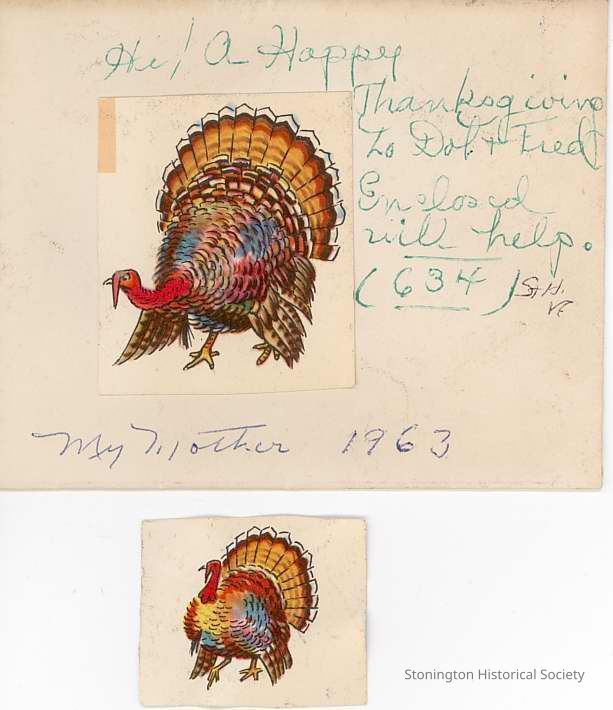 Hi! A Happy
Thanksgiving
To Dot + Fred
Enclosed
will help.
(634)
My Mother 1963
Stonington Historical Society